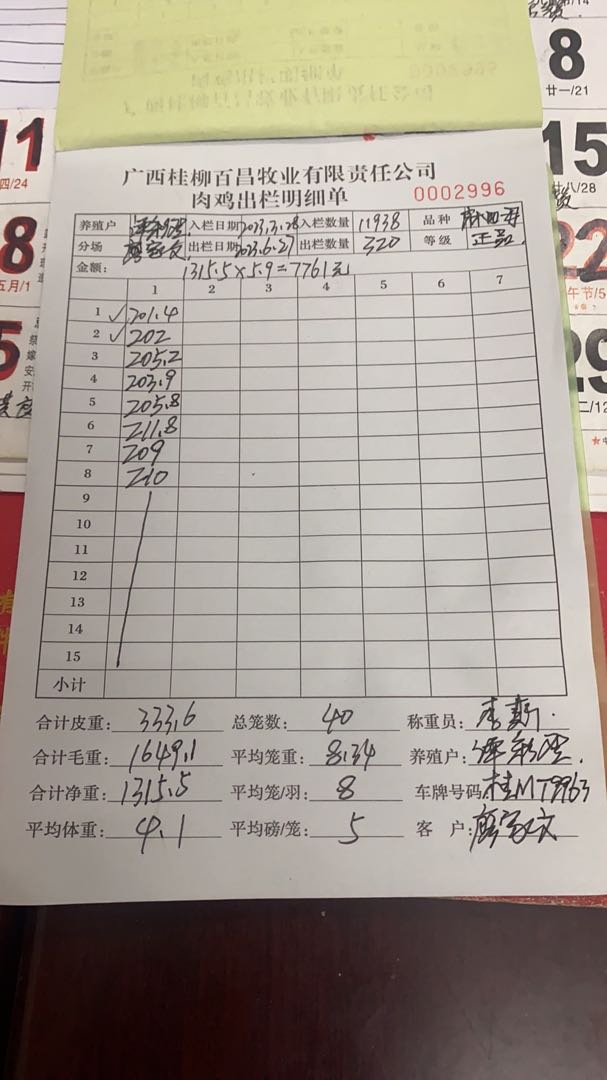 8
廿一/21
15
廿八/28
11
四/24
8
五月/1
5
22
29
0002996
广西桂柳百昌牧业有限责任公司
肉鸡出栏明细单
0002996
养殖户 入栏日期 2023.3.28 入栏数量 11938 品种
分场 出栏日期 2023.6.27 出栏数量 320 等级 正品
金额: 1315.5×5.9=7761元
1 2 3 4 5 6 7
1 ✓201.4
2 ✓202
3 205.2
4 203.9
5 205.8
6 211.8
7 209
8 210
9
10
11
12
13
14
15
小计
合计皮重: 333.6 总笼数: 40 称重员:
合计毛重: 1649.1 平均笼重: 8.34 养殖户:
合计净重: 1315.5 平均笼/羽: 8 车牌号码: 桂MT9963
平均体重: 4.1 平均磅/笼: 5 客 户: